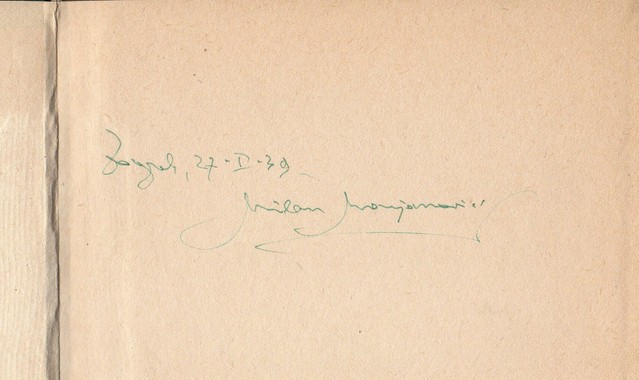 Zagreb, 27-I-39
Milan Marjanović